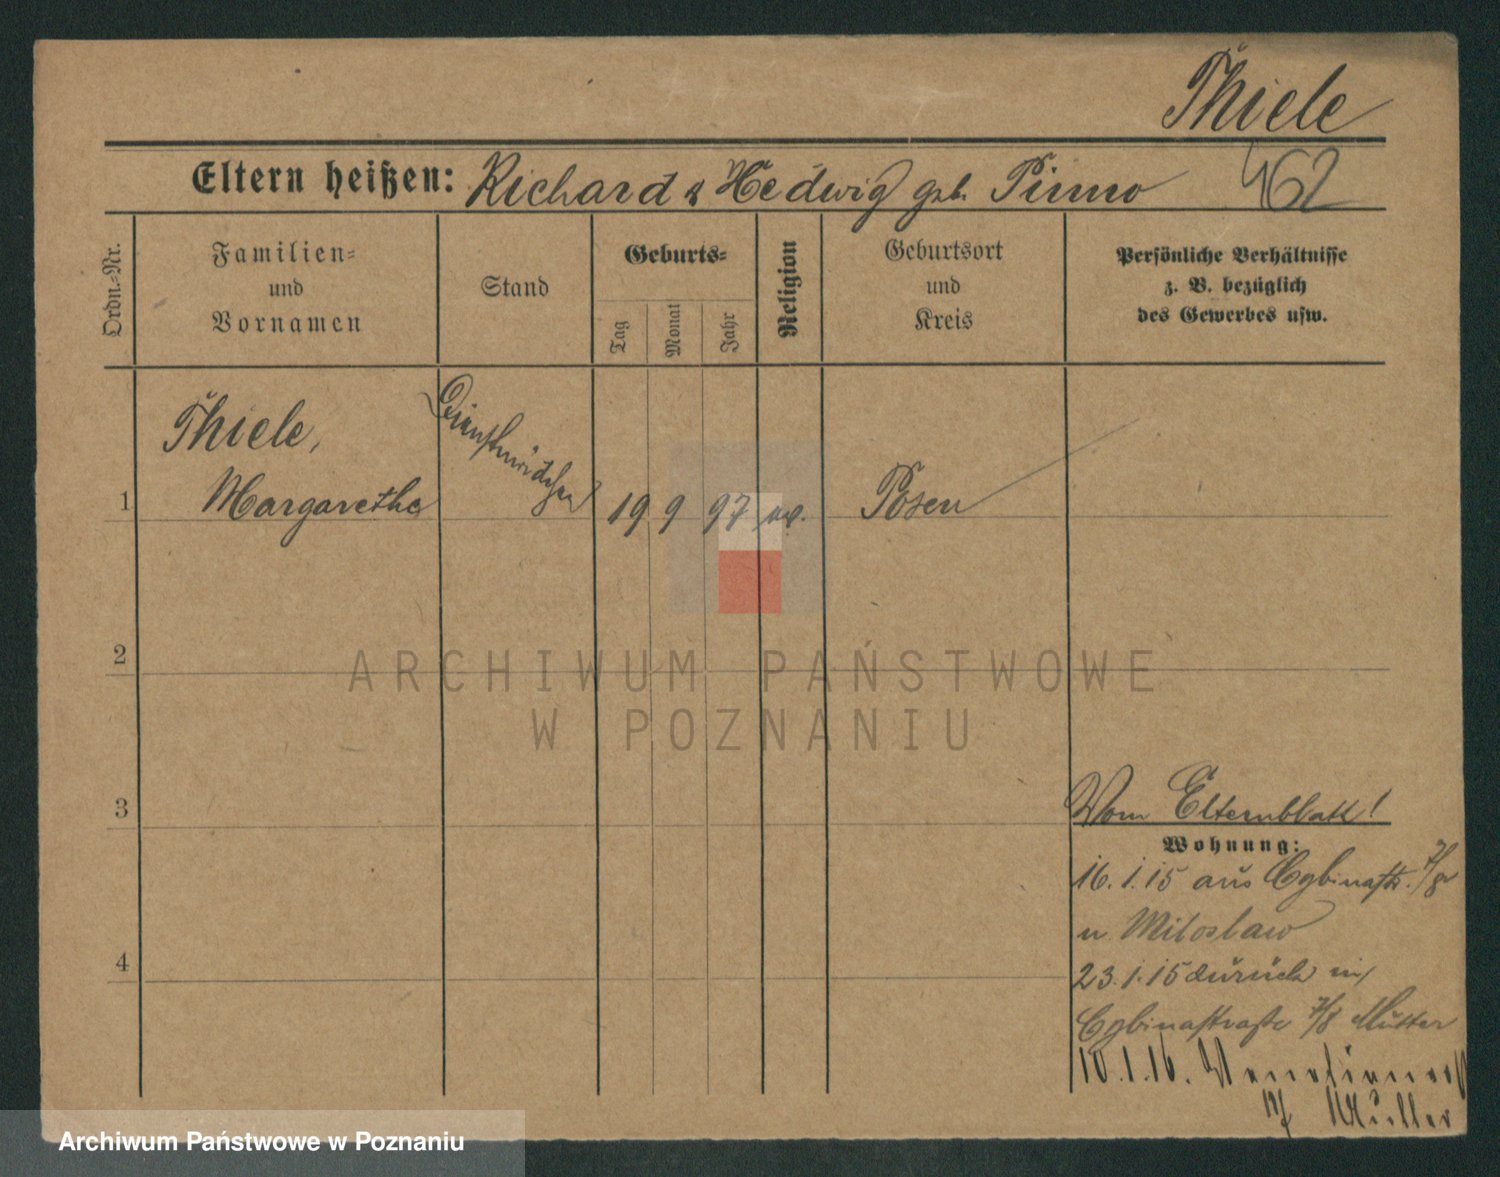 Thiele
Eltern heißen: Richard & Hedwig geb. Pinno 462
Ordn.-Nr.
Familien-
und
Vornamen
Stand
Geburts-
Tag
Monat
Jahr
Religion
Geburtsort
und
Kreis
Persönliche Verhältnisse
z. B. bezüglich
des Gewerbes usw.
Thiele,
1 Margarethe Dienstmädchen 19 9 97 ev. Posen
2
3
4
ARCHIWUM PAŃSTWOWE
W POZNANIU
Vom Elternblatt!
Wohnung:
16.1.15 aus Cybinastr. 7/8
n. Miloslaw
23.1.15 zurück in
Cybinastraße 7/8 Mutter
10.1.16.
Archiwum Państwowe w Poznaniu